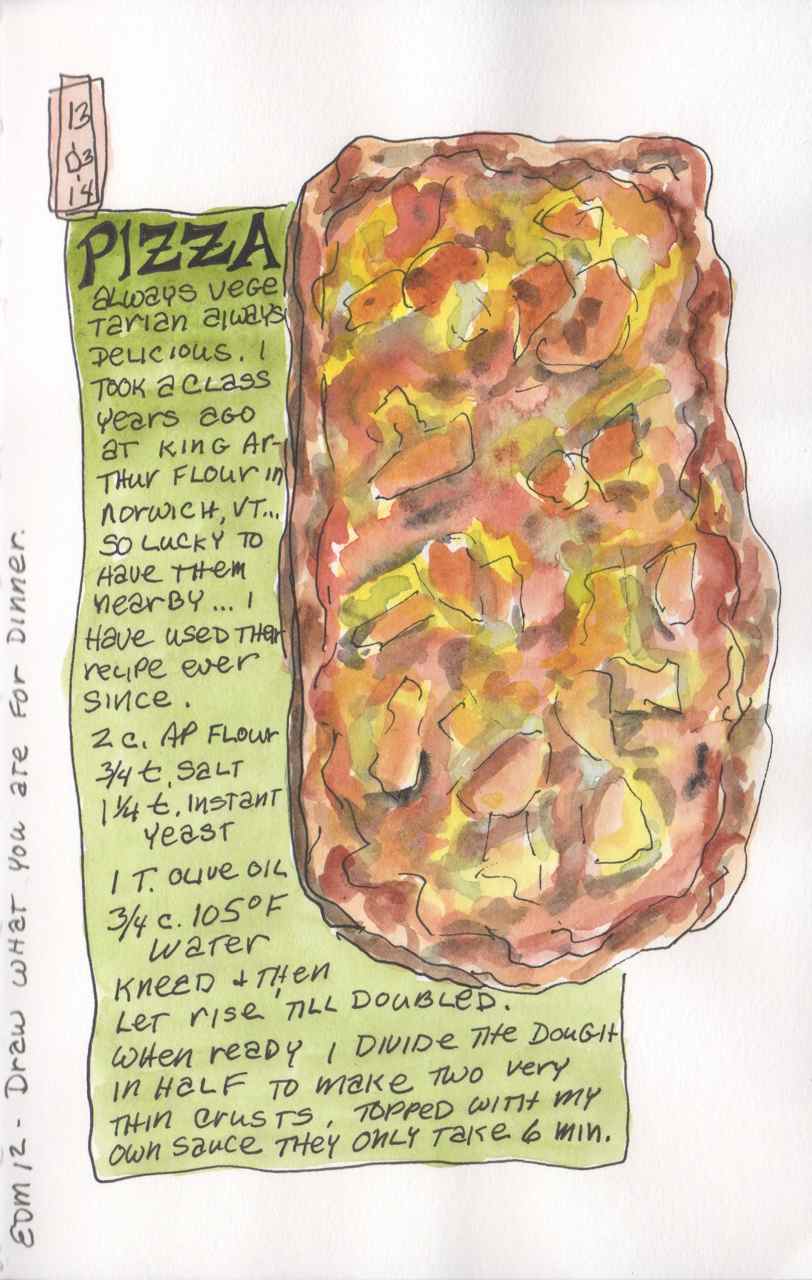 13
03
14
PIZZA
always vege
tarian always
Delicious. I
took a class
years ago
at King Ar-
thur Flour in
Norwich, VT...
so lucky to
have them
nearby... I
have used their
recipe ever
since.
2 c. AP Flour
3/4 t. salt
1 1/4 t. instant
yeast
1 T. olive oil
3/4 c. 105°F
water
Kneed + then
let rise till doubled.
When ready I divide the dough
in half to make two very
thin crusts. Topped with my
own sauce they only take 6 min.
EDM 12 - Draw what you are for Dinner.